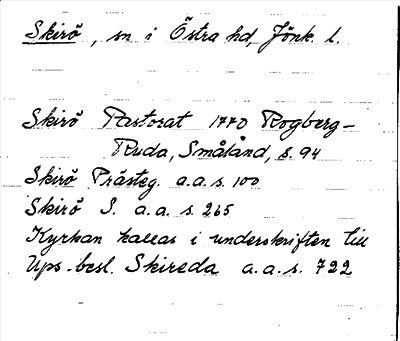 Skirö, sn i Östra hd, Jönk. l.
Skirö Pastorat 1770 Rogberg-
Ruda, Småland, s. 94
Skirö Prästeg. a.a.s. 100
Skirö S. a.a. s. 265
Kyrkan kallas i underskriften till
Ups. besl. Skireda a.a.s. 722